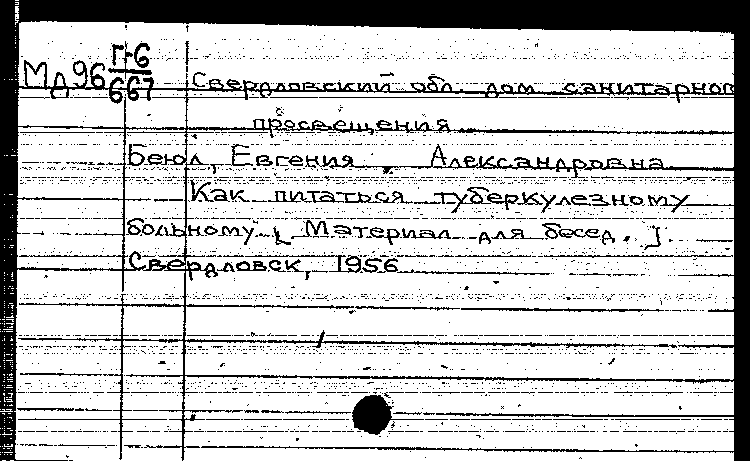 Мд96 Г-6/667
Свердловский обл. дом санитарного
просвещения
Беюл, Евгения Александровна
Как питаться туберкулезному
больному. [Материал для бесед.].
Свердловск, 1956